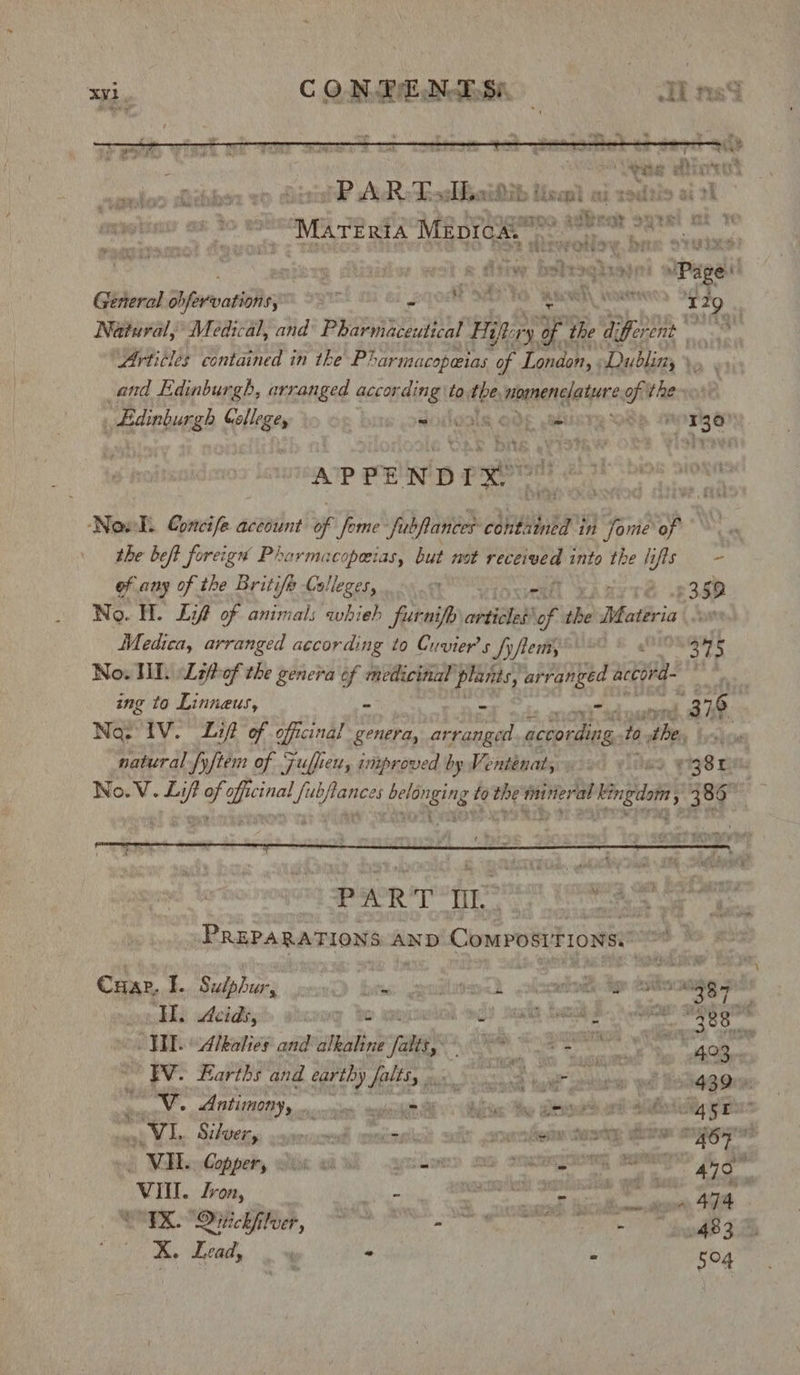 xvi CONTENTS.
PART II.
MATERIA MEDICA.
Page
General obſervations, - - 129
Natural, Medical, and Pharmaceutical Hiſtory of the different
Articles contained in the Pharmacopœias of London, Dublin,
and Edinburgh, arranged according to the nomenclature of the
Edinburgh College, - - 130
APPENDIX.
No. I. Conciſe account of ſome ſubſtances contained in ſome of
the beſt foreign Pharmacopœias, but not received into the liſts -
of any of the Britiſh Colleges, - 359
No. II. Liſt of animals which furniſh articles of the Materia
Medica, arranged according to Cuvier's ſyſtem, 375
No. III. Liſt of the genera of medicinal plants, arranged accord-
ing to Linnæus, - - - 376
No. IV. Liſt of officinal genera, arranged according to the
natural ſyſtem of Juſſieu, improved by Ventenat, 381
No. V. Liſt of officinal ſubſtances belonging to the mineral kingdom, 386
PART III.
PREPARATIONS AND COMPOSITIONS.
CHAP. I. Sulphur, - - 387
II. Acids, - - 388
III. Alkalies and alkaline ſalts, - 403
IV. Earths and earthy ſalts, - 439
V. Antimony, - - 451
VI. Silver, - - 467
VII. Copper, - - 470
VIII. Iron, - - 474
IX. Quickſilver, - - 483
X. Lead, - - 504